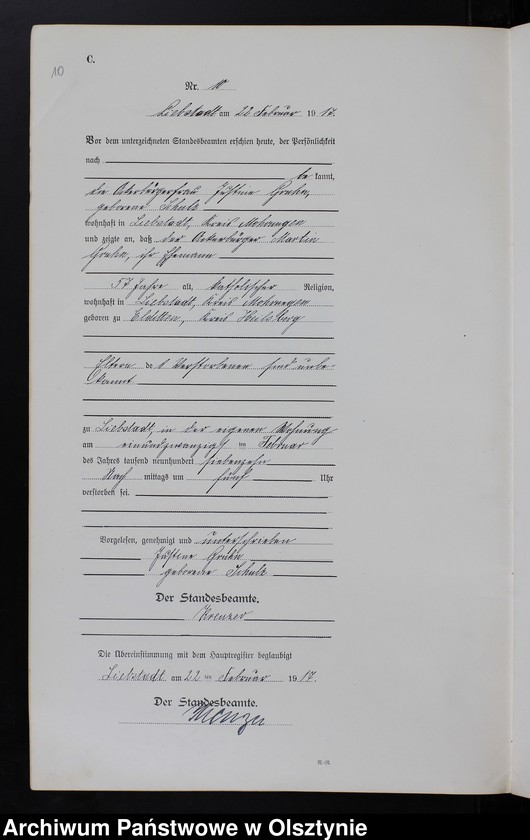 10
C.
Nr. 10
Liebstadt am 22 Februar 1917.
Vor dem unterzeichneten Standesbeamten erschien heute, der Persönlichkeit
nach
be kannt,
die Ackerbürgerfrau Justine Gruhn,
geborene Schulz
wohnhaft in Liebstadt, Kreis Mohrungen
und zeigte an, daß der Ackerbürger Martin
Gruhn, ihr Ehemann
57 Jahre alt, katholischer Religion,
wohnhaft in Liebstadt, Kreis Mohrungen
geboren zu Kreis Heilsberg
Eltern des Verstorbenen sind unbe-
kannt
zu Liebstadt, in der eigenen Wohnung
am einundzwanzigsten Februar
des Jahres tausend neunhundert siebenzehn
Nach mittags um fünf Uhr
verstorben sei.
Vorgelesen, genehmigt und unterschrieben
Justine Gruhn
geborene Schulz
Der Standesbeamte.
Die Übereinstimmung mit dem Hauptregister beglaubigt
Liebstadt am 22 ten Februar 1917.
Der Standesbeamte.
Archiwum Państwowe w Olsztynie